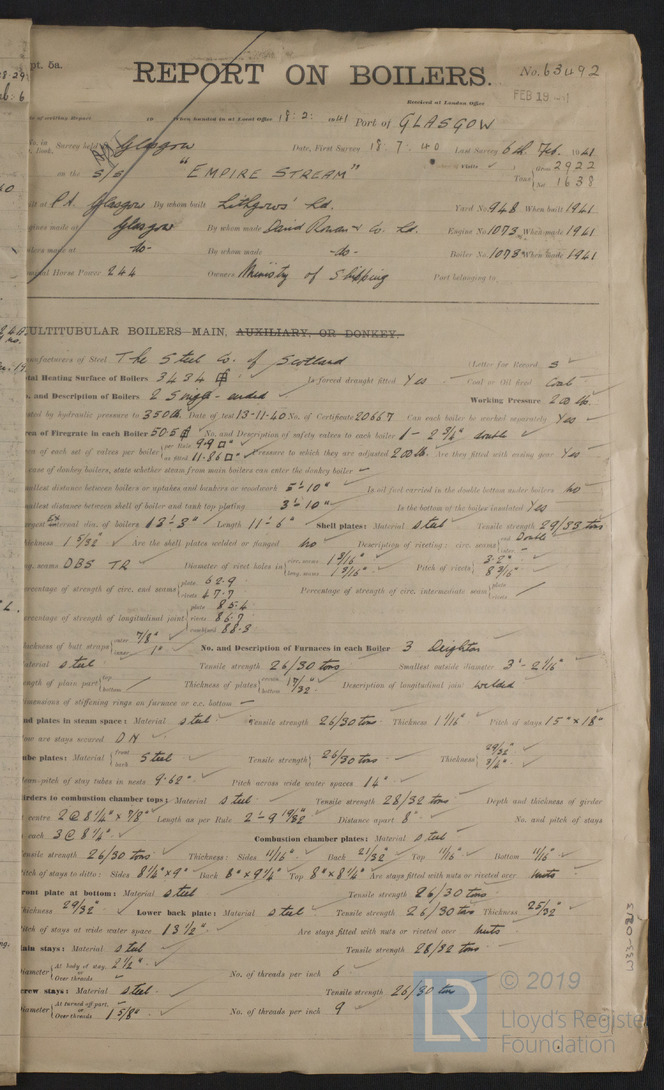 pt. 5a.
REPORT ON BOILERS.
No. 63492
Received at London Office
FEB 19 1941
of writing Report 19 When handed in at Local Office 18. 2. 1941 Port of GLASGOW
No. in Survey held at Glasgow Date, First Survey 18. 7. 40 Last Survey 6th Feb. 1941
on the S/S "EMPIRE STREAM" Tons Gross 2922
Net 1638
ilt at Pt. Glasgow By whom built Lithgows' Ld. Yard No. 948 When built 1941
gines made at Glasgow By whom made David Rowan & Co. Ld. Engine No. 1073 When made 1941
ilers made at -do- By whom made -do- Boiler No. 1073 When made 1941
minal Horse Power 244 Owners Ministry of Shipping Port belonging to
ULTITUBULAR BOILERS—MAIN, AUXILIARY, OR DONKEY.
nufacturers of Steel The Steel Co. of Scotland (Letter for Record S
tal Heating Surface of Boilers 3434 Is forced draught fitted Yes Coal or Oil fired Coal
. and Description of Boilers 2 Single-ended Working Pressure 200 lb.
sted by hydraulic pressure to 350 lb. Date of test 13-11-40 No. of Certificate 20667 Can each boiler be worked separately Yes
ea of Firegrate in each Boiler 50.5 No. and Description of safety valves to each boiler 1 - 2 3/4" double
ea of each set of valves per boiler per Rule 9.9 □" as fitted 11.86 □" Pressure to which they are adjusted 200 lb. Are they fitted with easing gear Yes
case of donkey boilers, state whether steam from main boilers can enter the donkey boiler –
allest distance between boilers or uptakes and bunkers or woodwork 5'-10" Is oil fuel carried in the double bottom under boilers No
allest distance between shell of boiler and tank top plating 3'-10" Is the bottom of the boiler insulated Yes
rgest external dia. of boilers 13'-3" Length 11'-6" Shell plates: Material steel Tensile strength 29/33 tons
ickness 1 5/32" Are the shell plates welded or flanged No Description of riveting: circ. seams end Double
ng. seams DBS TR Diameter of rivet holes in circ. seams 1 3/16" long. seams 1 3/16" Pitch of rivets 3.2" 8 3/16"
rcentage of strength of circ. end seams plate 62.9 rivets 47.7 Percentage of strength of circ. intermediate seam plate rivets
rcentage of strength of longitudinal joint plate 85.4 rivets 86.7 combined 88.3
ickness of butt straps outer 7/8" inner 1" No. and Description of Furnaces in each Boiler 3 Deighton
aterial steel Tensile strength 26/30 tons Smallest outside diameter 3'-2 9/16"
ngth of plain part top bottom Thickness of plates crown bottom 17/32" Description of longitudinal joint welded
imensions of stiffening rings on furnace or c.c. bottom –
nd plates in steam space: Material steel Tensile strength 26/30 tons Thickness 1 1/16" Pitch of stays 15" x 18"
ow are stays secured DN
ube plates: Material front back steel Tensile strength 26/30 tons Thickness 29/32" 3/4"
ean pitch of stay tubes in nests 9.62" Pitch across wide water spaces 14"
irders to combustion chamber tops: Material steel Tensile strength 28/32 tons Depth and thickness of girder
centre 2 @ 8 1/4" x 7/8" Length as per Rule 2'-9 19/32" Distance apart 8" No. and pitch of stays
each 3 @ 8 1/4" Combustion chamber plates: Material steel
ensile strength 26/30 tons Thickness: Sides 11/16" Back 21/32" Top 11/16" Bottom 11/16"
itch of stays to ditto: Sides 8 1/4" x 9" Back 8" x 9 1/4" Top 8" x 8 1/4" Are stays fitted with nuts or riveted over nuts
ront plate at bottom: Material steel Tensile strength 26/30 tons
hickness 29/32" Lower back plate: Material steel Tensile strength 26/30 tons Thickness 25/32"
itch of stays at wide water space 13 1/2" Are stays fitted with nuts or riveted over nuts
ain stays: Material steel Tensile strength 28/32 tons
iameter At body of stay, or Over threads 2 1/2" No. of threads per inch 6
crew stays: Material steel Tensile strength 26/30 tons
iameter At turned off part, or Over threads 1 5/8" No. of threads per inch 9
W33-0213
© 2019
LR
Lloyd's Register
Foundation